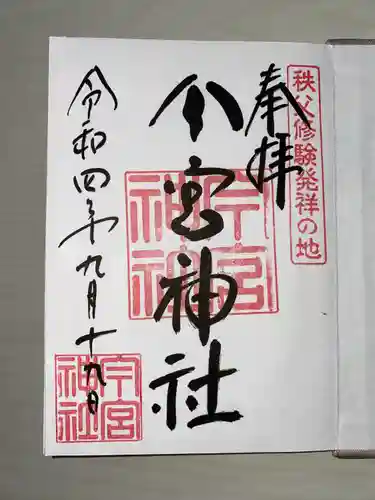 秩父修験発祥の地
奉拝
今宮神社
今宮神社
令和四年九月十九日
今宮神社